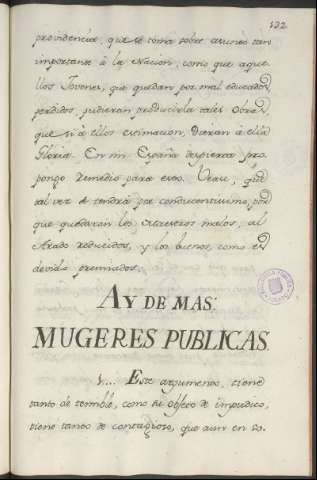 132
providencia, que se toma sobre asunto tan
importante à la Nacion, como que aque-
llos Jovenes, que quedan por mal educados
perdidos, pudieran producirla tales obras,
que si à ellos estimacion, dieran à ella
Gloria. En mi España despierta pro-
pongo remedio para esto. Vease, que
tal vez se tendrà por conducentissimo, por
que quedaran los Maestros malos, al
Arado reducidos, y los buenos, como es
devido premiados.
AY DE MAS:
MUGERES PUBLICAS.
1.... Este argumento, tiene
tanto de terrible, como su objeto de impudico,
tiene tanto de contagioso, que aun en so-